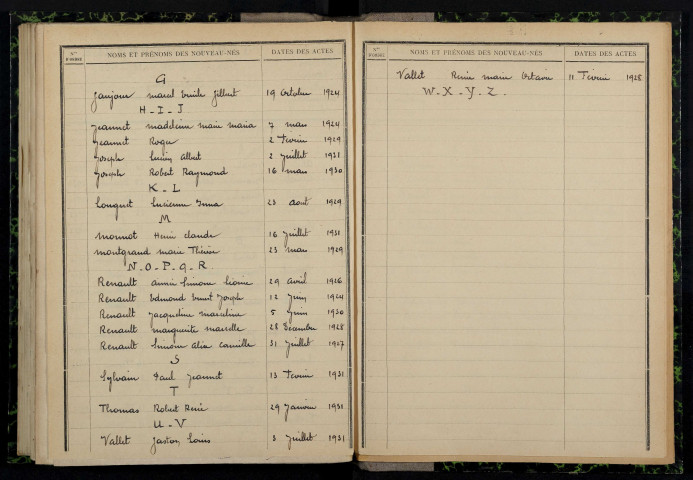 Nos D'ORDRE NOMS ET PRÉNOMS DES NOUVEAU-NÉS DATES DES ACTES
G
Janjour marcel Emile Gilbert 19 Octobre 1924
H-I-J
Jeannet madeleine marie maria 7 mars 1924
Jeannet Roger 2 Fevrier 1929
Joseph Lucien Albert 2 Juillet 1921
Joseph Robert Raymond 16 mars 1930
K-L
Longuet Lucienne Irma 23 aout 1929
M
monnot Henri claude 16 Juillet 1931
montgrand marie Thérèse 23 mars 1929
N-O-P-Q-R
Renault Simone 29 avril 1926
Renault Edmond Ernest Joseph 12 Juin 1924
Renault Jacqueline marceline 5 Juin 1930
Renault marguerite marcelle 28 Decembre 1928
Renault Simone alix camille 31 Juillet 1927
S
Sylvain Paul Jeannet 13 Fevrier 1931
T
Thomas Robert René 29 Janvier 1931
U-V
Vallet Gaston Louis 3 Juillet 1931
Nos D'ORDRE NOMS ET PRÉNOMS DES NOUVEAU-NÉS DATES DES ACTES
Vallet marie Octavie 11 Fevrier 1928
W-X-Y-Z.